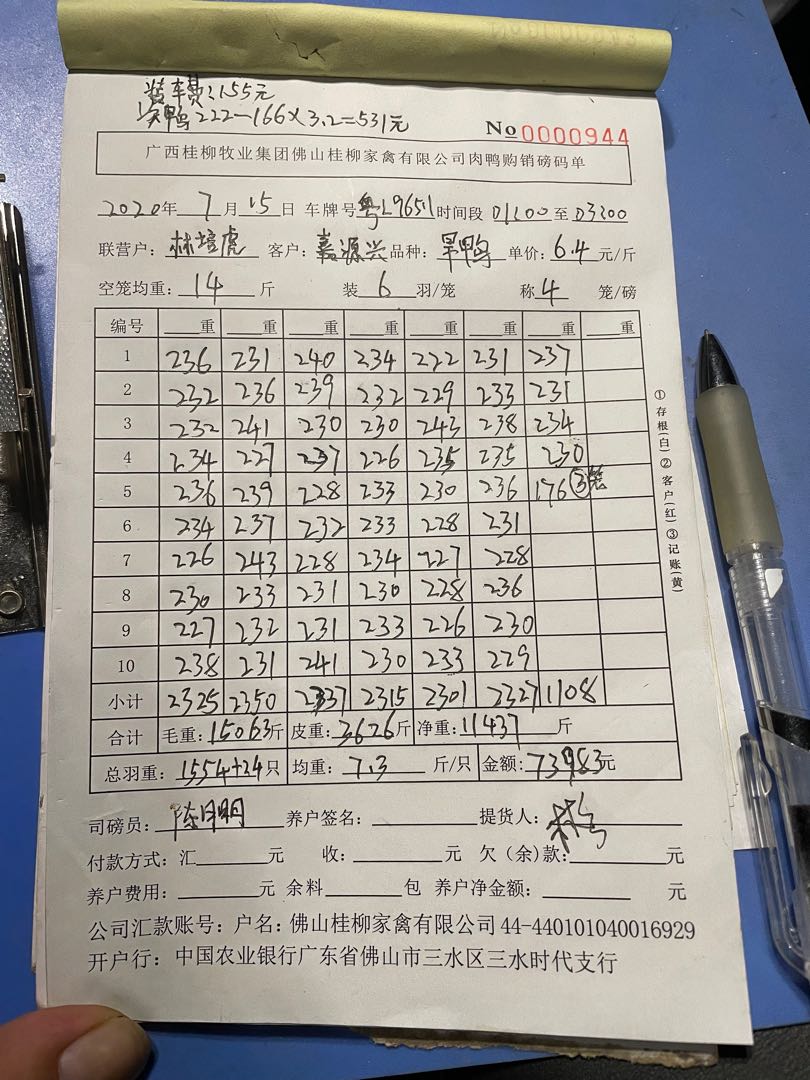 装车费:155元
次鸭222-166×3.2=531元
No 0000944
广西桂柳牧业集团佛山桂柳家禽有限公司肉鸭购销磅码单
2020年 7月 15日 车牌号 粤L9651 时间段 01200 至 03200
联营户: 林培虎 客户: 嘉源兴 品种: 旱鸭 单价: 6.4 元/斤
空笼均重: 14 斤 装 6 羽/笼 称 4 笼/磅
编号 重 重 重 重 重 重 重 重
1 236 231 240 234 222 231 237
2 232 236 239 232 229 233 231
3 232 241 230 230 243 238 234
4 234 227 237 226 235 235 230
5 236 239 228 233 230 236 176 ③笼
6 234 237 232 233 228 231
7 226 243 228 234 227 228
8 230 233 231 230 228 236
9 227 232 231 233 226 230
10 238 231 241 230 233 229
小计 2325 2350 2337 2315 2301 2327 1108
合计 毛重: 15063斤 皮重: 3626斤 净重: 11437 斤
总羽重: 1554+24只 均重: 7.3 斤/只 金额: 73983元
司磅员: 陈明明 养户签名: 提货人:
付款方式: 汇 元 收: 元 欠(余)款: 元
养户费用: 元 余料 包 养户净金额: 元
公司汇款账号: 户名: 佛山桂柳家禽有限公司 44-440101040016929
开户行: 中国农业银行广东省佛山市三水区三水时代支行
①存根(白)②客户(红)③记账(黄)